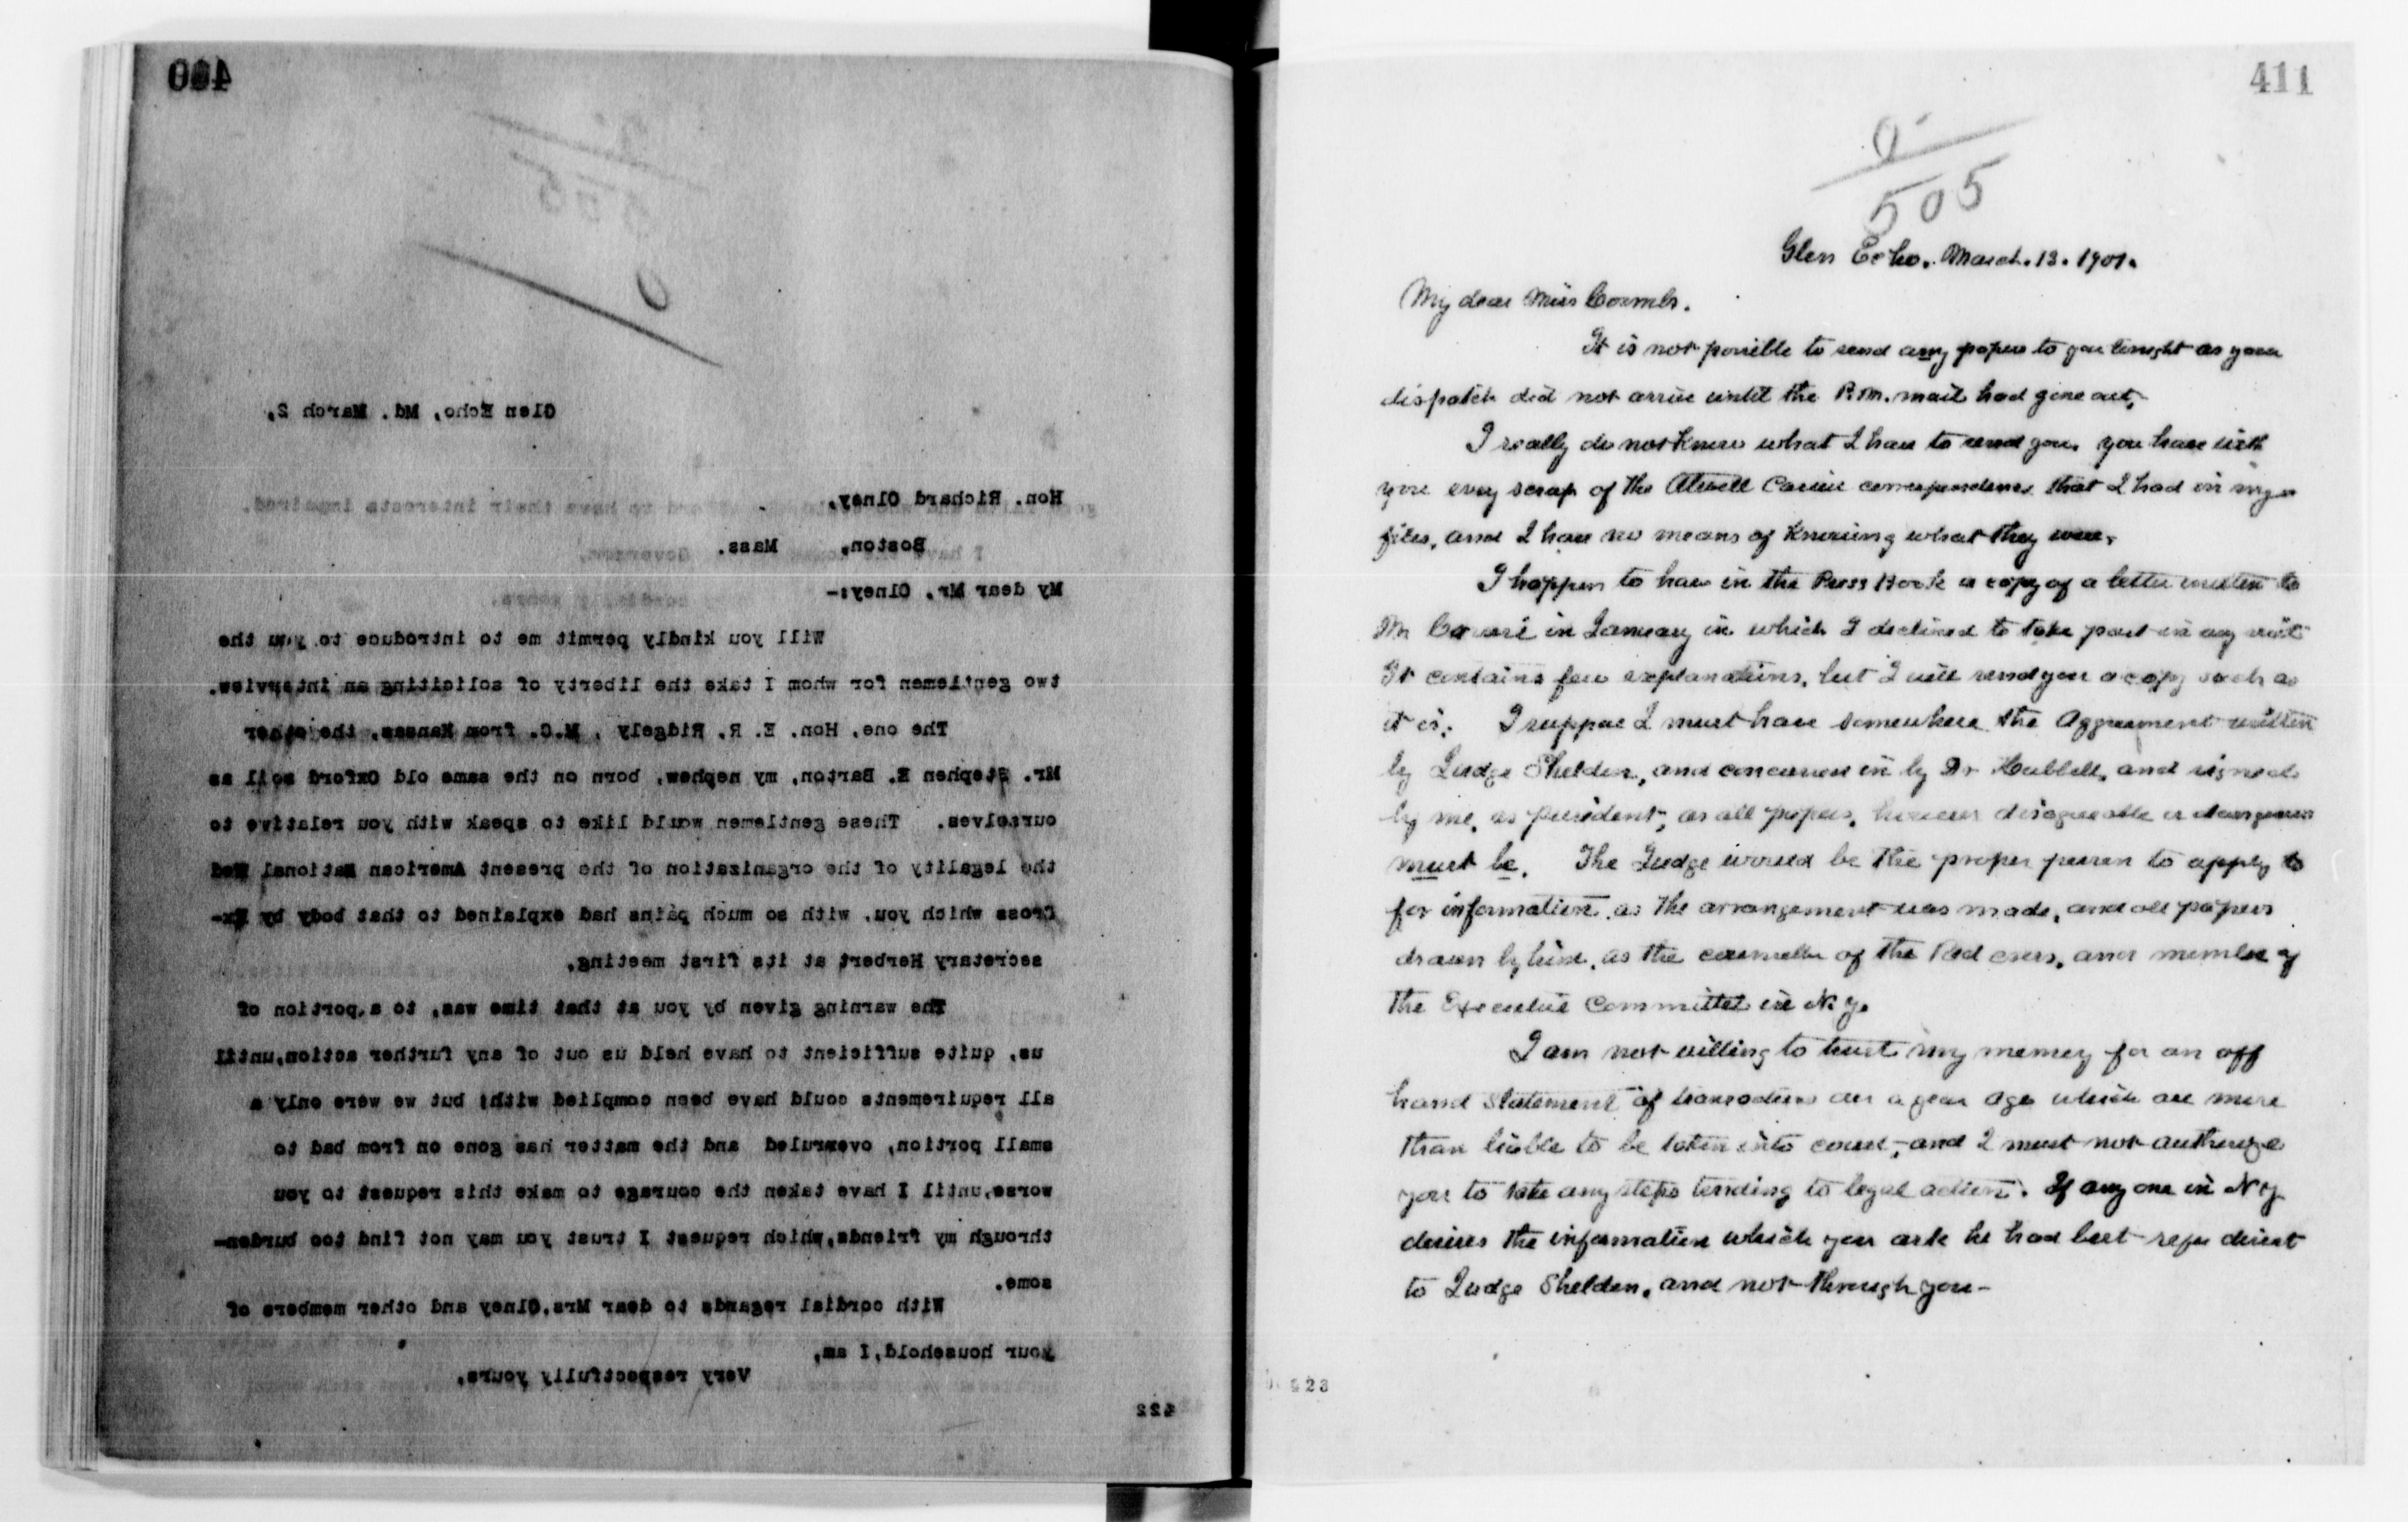 400
Glen Echo, Md. March 2,
Hon. Richard Olney,
Boston, Mass.
My dear Mr. Olney:-
Will you kindly permit me to introduce to you the
two gentlemen for whom I take the liberty of soliciting an interview.
The one, Hon. E. R. Ridgely , M.C. from Kansas, the other
Mr. Stephen E. Barton, my nephew, born on the same old Oxford soil as
ourselves. These gentlemen would like to speak with you relative to
the legality of the organization of the present American National Red
Cross which you, with so much pains had explained to that body by Ex-
secretary Herbert at its first meeting.
The warning given by you at that time was, to a portion of
us, quite sufficient to have held us out of any further action,until
all requirements could have been complied with; but we were only a
small portion, overruled and the matter has gone on from bad to
worse,until I have taken the courage to make this request to you
through my friends,which request I trust you may not find too burden-
some.
With cordial regards to dear Mrs.Olney and other members of
your household,I am,
Very respectfully yours,
422
411
505
Glen Echo. March. 13. 1901.
My dear Miss Coombs.
It is not possible to send any papers to you tonight as your
dispatch did not arrive until the P.M. mail had gone out.
I really do not know what I have to send you. you have with
you every scrap of the correspondence that I had in my
files, and I have no means of knowing what they were.
I happen to have in the Press Book a copy of a letter written to
Mr in January in which I declined to take part in any suit
It contains few explanations, but I will send you a copy such as
it is. I suppose I must have somewhere the Aggreement written
by Judge Sheldon, and concurred in by Dr Hubbell, and signed
by me, as president, as all papers, however disagreeable or dangerous
must be. The Judge would be the proper person to apply to
for information, as the arrangement was made, and all papers
drawn by him, as the counsellor of the Red cross, and member of
the Executive Committee in N.Y.
I am not willing to trust my memory for an off
hand statement of transactions over a year ago which are more
than liable to be taken into court, and I must not authorize
you to take any steps tending to legal action. If any one in N Y
desires the information which you ask he had best refer direct
to Judge Sheldon, and not through you-
423